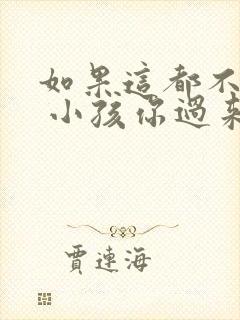 如果這都不
小孩你過來
賈連海